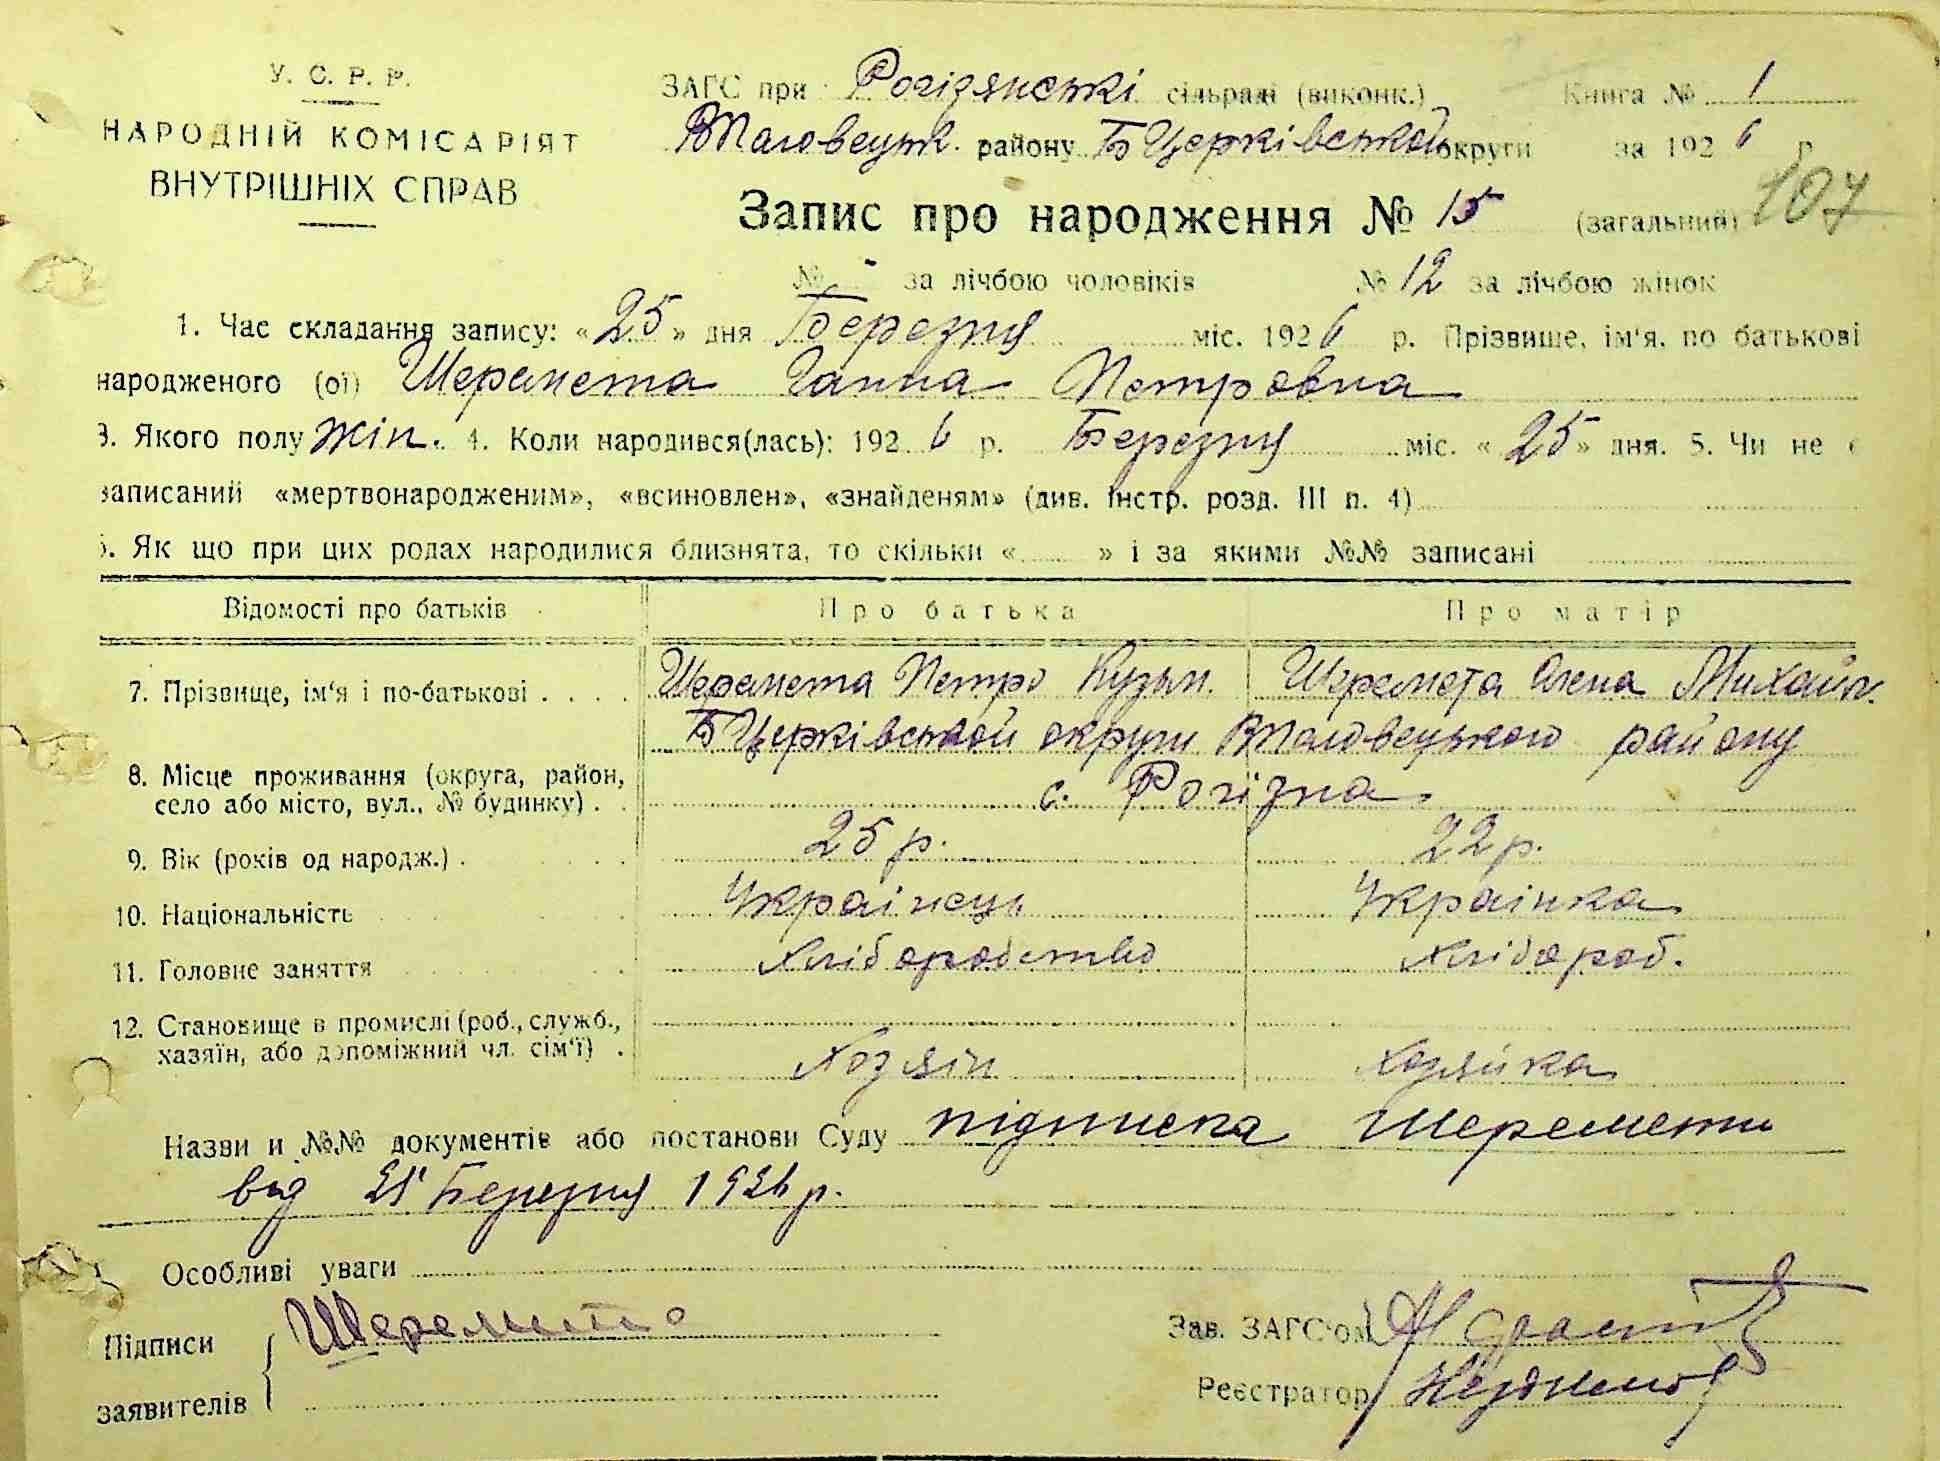 У. С. Р. Р.
НАРОДНІЙ КОМІСАРІЯТ
ВНУТРІШНІХ СПРАВ
ЗАГС при Рогізянські сільраді (виконк.) Книга № 1
району Б Церківської округи за 1926 р
107
Запис про народження № 15 (загальний)
№ - за лічбою чоловіків № 12 за лічбою жінок
1. Час складання запису: «25» дня Березня міс. 1926 р. Прізвище, ім'я, по батькові
народженого (ої) Шеремета Ганна Петровна
3. Якого полу жін. 4. Коли народився(лась): 1926 р. Березня міс. «25» дня. 5. Чи не є
записаний «мертвонародженим», «всиновлен», «знайденям» (див. інстр. розд. III п. 4)
6. Як що при цих родах народилися близнята, то скільки « » і за якими №№ записані
Відомості про батьків Про батька Про матір
7. Прізвище, ім'я і по-батькові . . . . Шеремета Петро Кузьм. Шеремета Олена Михайл.
Б Церківської округи району
8. Місце проживання (округа, район,
село або місто, вул., № будинку) . . с. Рогізна.
9. Вік (років од народж.) . 25 р. 22 р.
10. Національність Украінець Украінка
11. Головне заняття Хліборобство Хлібороб.
12. Становище в промислі (роб., служб.,
хазяїн, або допоміжний чл. сім'ї) . Хозяїн Хозяйка
Назви и №№ документів або постанови Суду підписка Шеремети
від 25 Березня 1926 р.
Особливі уваги
Підписи Шеремета
заявителів
Зав. ЗАГС'ом
Реєстратор